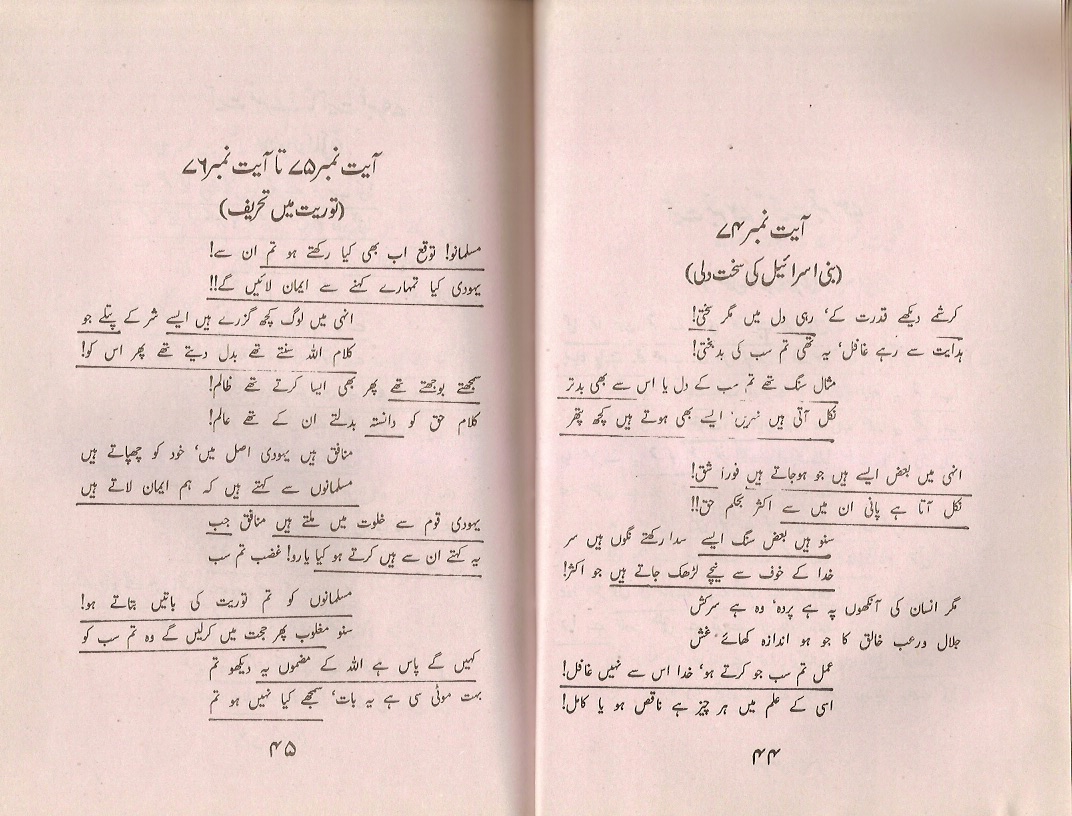 آیت نمبر ۷۴
(بنی اسرائیل کی سخت دلی)
کرشمے دیکھے قدرت کے، رہی دل میں مگر سختی!
ہدایت سے رہے غافل، یہ تھی تم سب کی بدبختی!
مثال سنگ تھے تم سب کے دل یا اس سے بھی بدتر
نکل آتی ہیں نہریں، ایسے بھی ہوتے ہیں کچھ پتھر
انہی میں بعض ایسے ہیں جو ہوجاتے ہیں فوراً شق!
نکل آتا ہے پانی ان میں سے اکثر بحکم حق!!
سنو ہیں بعض سنگ ایسے سدا رکھتے نگوں ہیں سر
خدا کے خوف سے نیچے لڑھک جاتے ہیں جو اکثر!
مگر انسان کی آنکھوں پہ ہے پردہ، وہ ہے سرکش
جلال ورعب خالق کا جو ہو اندازہ کھائے غش
عمل تم سب جو کرتے ہو، خدا اس سے نہیں غافل!
اسی کے علم میں ہر چیز ہے ناقص ہو یا کامل!
۴۴
آیت نمبر ۷۵ تا آیت نمبر ۷۶
(توریت میں تحریف)
مسلمانو! توقع اب بھی کیا رکھتے ہو تم ان سے!
یہودی کیا تمہارے کہنے سے ایمان لائیں گے!!
انہی میں لوگ کچھ گزرے ہیں ایسے شر کے پتلے جو
کلام اللہ سنتے تھے بدل دیتے تھے پھر اس کو!
سمجھتے بوجھتے تھے پھر بھی ایسا کرتے تھے ظالم!
کلام حق کو دانستہ بدلتے ان کے تھے عالم!
منافق ہیں یہودی اصل میں، خود کو چھپاتے ہیں
مسلمانوں سے کہتے ہیں کہ ہم ایمان لاتے ہیں
یہودی قوم سے خلوت میں ملتے ہیں منافق جب
یہ کہتے ان سے ہیں کرتے ہو کیا یارو! غضب تم سب
مسلمانوں کو تم توریت کی باتیں بتاتے ہو!
سنو مغلوب پھر حجت میں کرلیں گے وہ تم سب کو
کہیں گے پاس ہے اللہ کے مضموں یہ دیکھو تم
بہت موٹی سی ہے یہ بات، سمجھے کیا نہیں ہو تم
۴۵